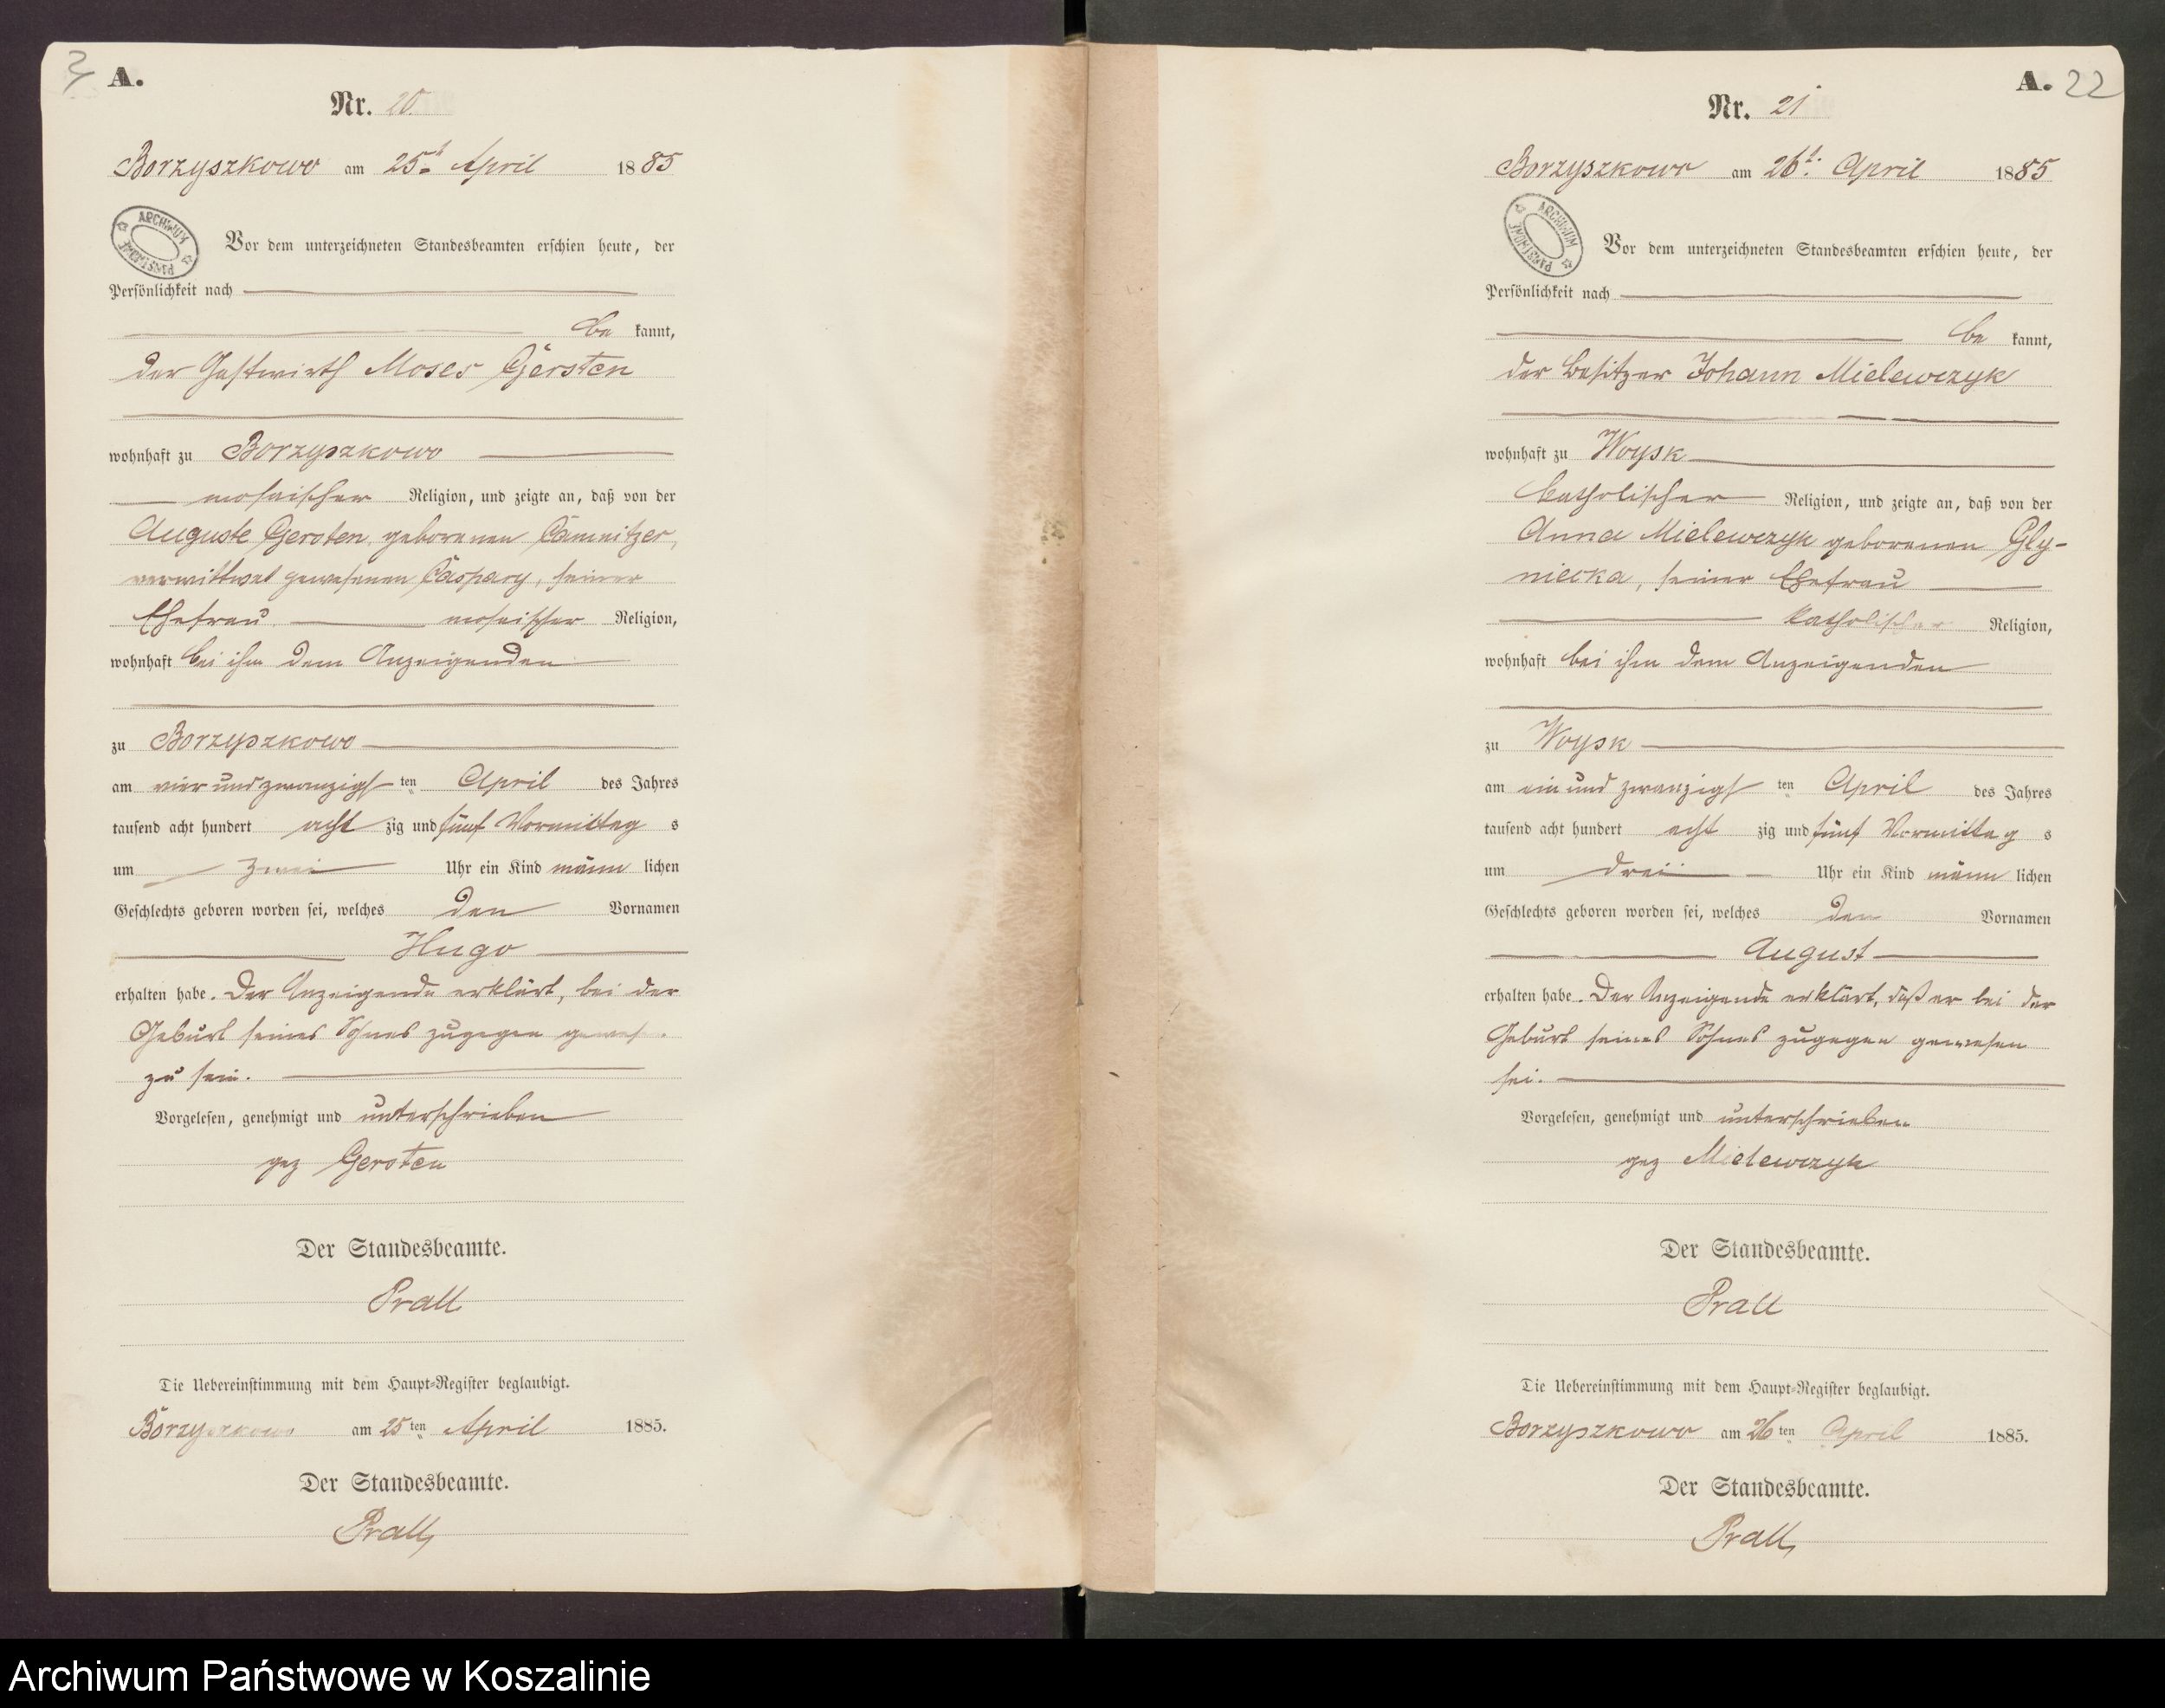 A.
Nr. 20.
Borzyszkowo am 25t April 1885
ARCHIWUM PAŃSTWOWE
Vor dem unterzeichneten Standesbeamten erschien heute, der
Persönlichkeit nach
be kannt,
der Gastwirth Moses Gersten
wohnhaft zu Borzyszkowo
mosaischer Religion, und zeigte an, daß von der
Auguste Gersten geborenen Caminitzer,
verwittwet gewesenen Caspary, seiner
Ehefrau mosaischer Religion,
wohnhaft bei ihm dem Anzeigenden
zu Borzyszkowo
am vier und zwanzigsten April des Jahres
tausend acht hundert acht zig und fünf Vormittag s
um zwei Uhr ein Kind männ lichen
Geschlechts geboren worden sei, welches den Vornamen
Hugo
erhalten habe. Der Anzeigende erklärt, bei der
Geburt seines Sohnes zugegen gewesen
zu sein.
Vorgelesen, genehmigt und unterschrieben
gez Gersten
Der Standesbeamte.
Prall
Die Uebereinstimmung mit dem Haupt-Register beglaubigt.
Borzyszkowo am 25ten April 1885.
Der Standesbeamte.
Prall
A. 22
Nr. 21
Borzyszkowo am 26t. April 1885
ARCHIWUM PAŃSTWOWE
Vor dem unterzeichneten Standesbeamten erschien heute, der
Persönlichkeit nach
be kannt,
der Besitzer Johann Mielewczyk
wohnhaft zu Woysk
katholischer Religion, und zeigte an, daß von der
Anna Mielewczyk geborenen Gly-
niecka, seiner Ehefrau
katholischer Religion,
wohnhaft bei ihm dem Anzeigenden
zu Woysk
am ein und zwanzigsten April des Jahres
tausend acht hundert acht zig und fünf Vormittag s
um drei Uhr ein Kind männ lichen
Geschlechts geboren worden sei, welches den Vornamen
August
erhalten habe. Der Anzeigende erklärt, daß er bei der
Geburt seines Sohnes zugegen gewesen
sei.
Vorgelesen, genehmigt und unterschrieben
gez Mielewczyk
Der Standesbeamte.
Prall
Die Uebereinstimmung mit dem Haupt-Register beglaubigt.
Borzyszkowo am 26ten April 1885.
Der Standesbeamte.
Prall
Archiwum Państwowe w Koszalinie